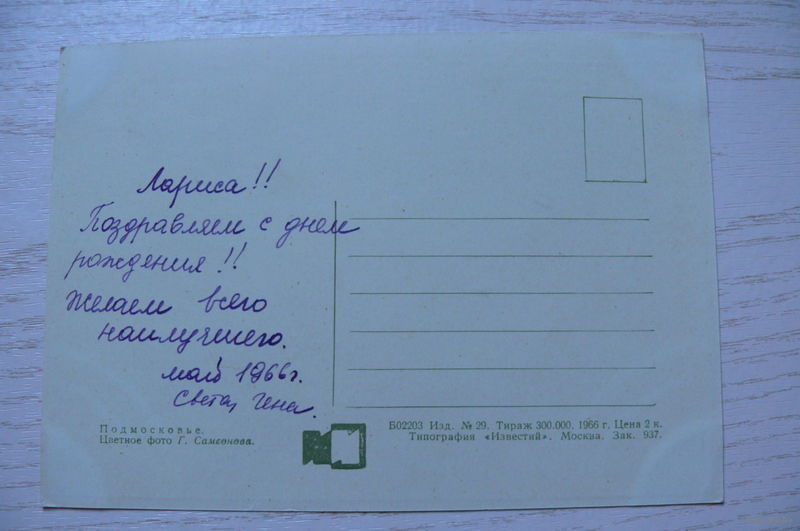 Лариса!!
Поздравляем с днем
рождения!!
Желаем всего
наилучшего.
май 1966г.
Света, Гена.
Подмосковье.
Цветное фото Г. Самсонова.
Б02203 Изд. № 29. Тираж 300.000. 1966 г. Цена 2 к.
Типография «Известий». Москва. Зак. 937.